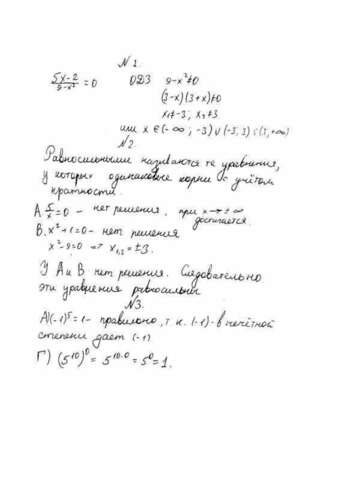 N 1.
5x-2/9-x² = 0 ОДЗ 9-x²≠0
(3-x)(3+x)≠0
x₁≠-3; x₂≠3
или x ∈ (-∞; -3) ∪ (-3; 3) ∪ (3; +∞)
N2.
Равносильными называются те уравнения,
у которых одинаковые корни с учётом
кратности.
A. 5/x = 0 - нет решения. при x→±∞
достигается.
B. x²+1=0 - нет решения
x²-9=0 => x₁,₂=±3.
У A и B нет решения. Следовательно
эти уравнения равносильны
N3.
A)(-1)⁵=1- правильно, т к. (-1)- в нечётной
степени дает (-1)
Г) (5¹⁰)⁰ = 5¹⁰·⁰ = 5⁰ = 1.